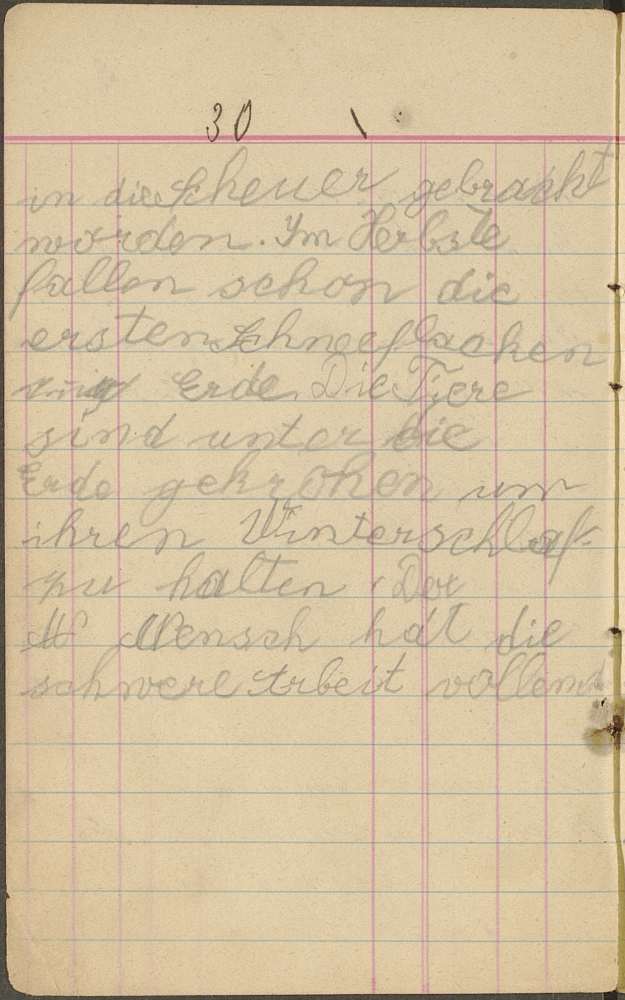 30
in die Scheuer gebracht
worden. Im Herbste
fallen schon die
ersten Schneeflacken
Erde. Die Tiere
sind unter die
Erde gekrohen um
ihren Winterschlaf
zu halten. Der
Mensch hat die
schwere Arbeit vollend